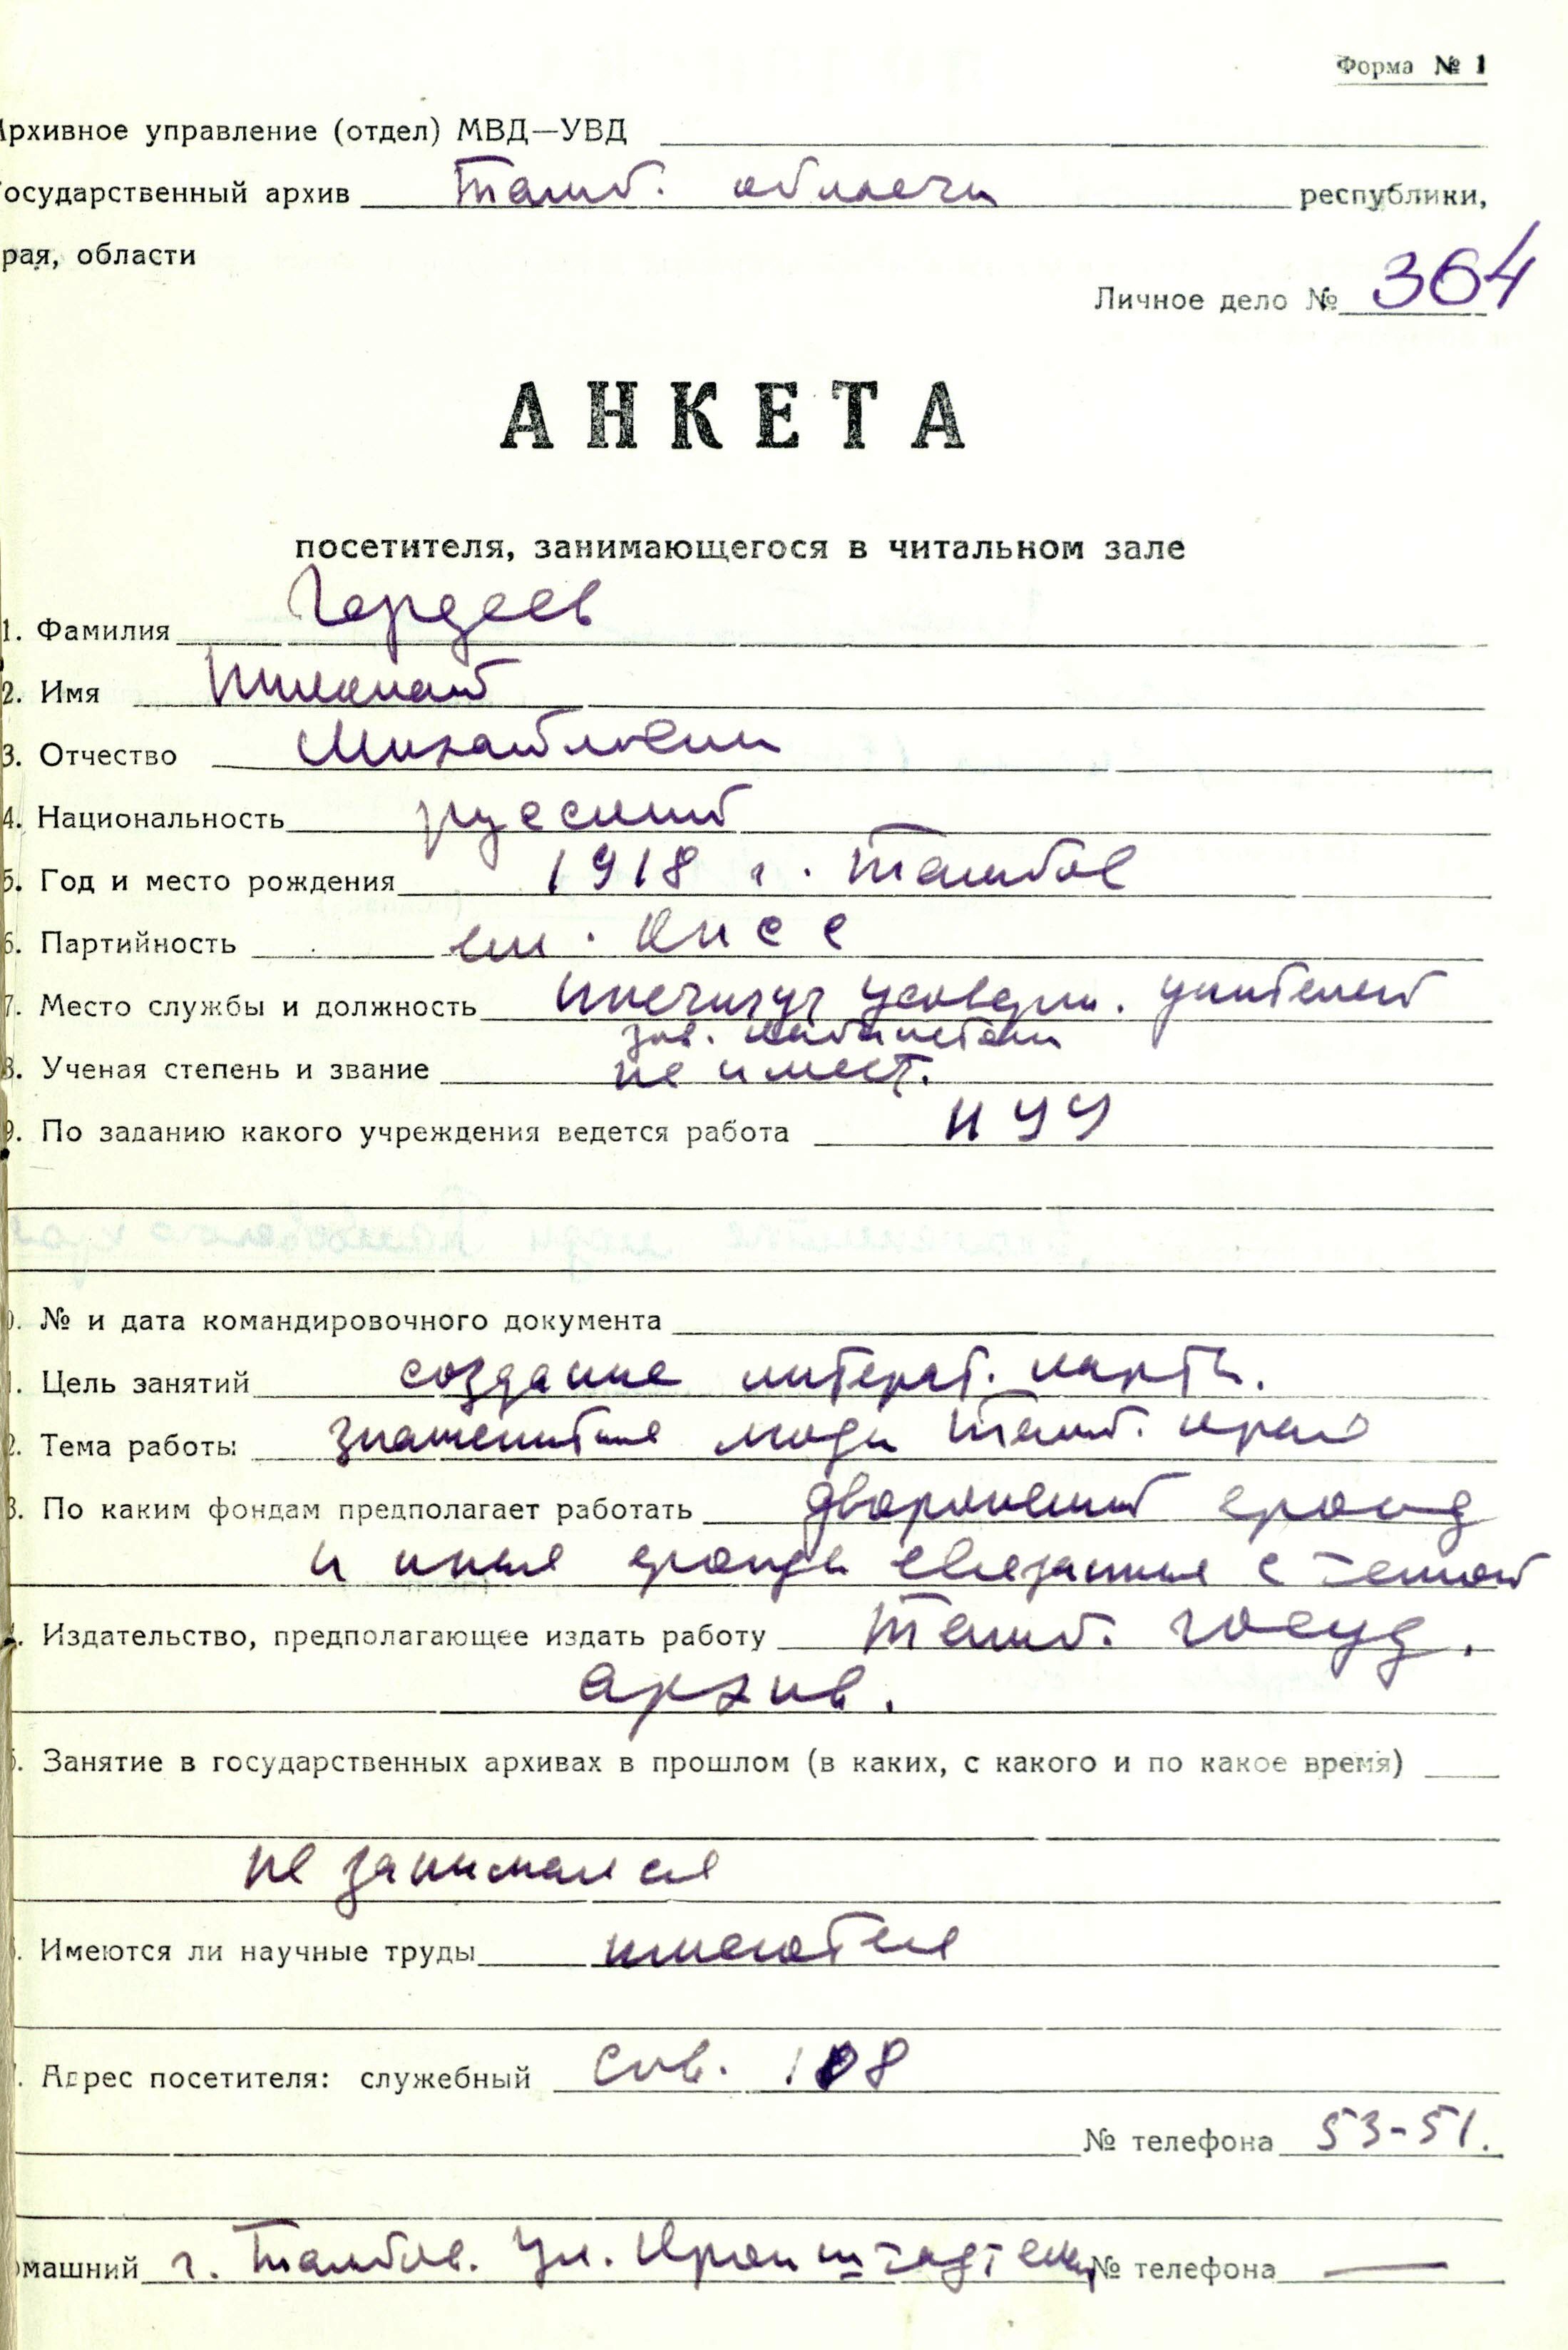 Форма № 1
Архивное управление (отдел) МВД—УВД
Государственный архив Тамб. области республики,
рая, области
Личное дело № 364
АНКЕТА
посетителя, занимающегося в читальном зале
1. Фамилия Гордеев
2. Имя Николай
3. Отчество Михайлович
4. Национальность русский
5. Год и место рождения 1918 г. Тамбов
6. Партийность чл. КПСС
7. Место службы и должность Институт усоверш. учителей
зав. кабинетом
8. Ученая степень и звание не имеет.
9. По заданию какого учреждения ведется работа ИУУ
0. № и дата командировочного документа
1. Цель занятий создание литерат. карты.
2. Тема работы знаменитые люди Тамб. края
3. По каким фондам предполагает работать дворянский фонд
и иные фонды связанные с темой
4. Издательство, предполагающее издать работу Тамб. госуд.
архив.
5. Занятие в государственных архивах в прошлом (в каких, с какого и по какое время)
не занимался
. Имеются ли научные труды имеются
. Адрес посетителя: служебный Сов. 108
№ телефона 53-51.
омашний г. Тамбов. Ул. Кронштадтская № телефона —